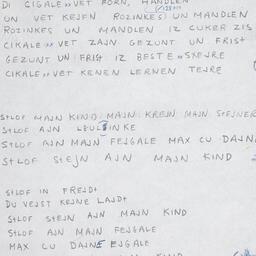 DI CIGALE »» VET FORN, HANDLEN
UN VET KEJFN ROZINKES) UN MANDLEN
ROZINKES UN MANDLEN IZ CUKER ZIS
CIKALE »» VET ZAJN GEZUNT UN FRISt
GEZUNT UN FRISt IZ BESTE »» SXEJRE
CIKALE »» VET KENEN LERNEN TEJRE
StLOF MAJN KIND, MAJN KREJN MAJN StEJNER
StLOF AJN
StLOF AJN MAJN FEJGALE MAX CU DAJN
StLOF StEJN AJN MAJN KIND
StLOF IN FREJDt
DU VEJST KEJNE LAJDt
StLOF StEJN AJN MAJN KIND
StLOF AJN MAJN FEJGALE
MAX CU DAJNE EJGALE
MAJN KIND